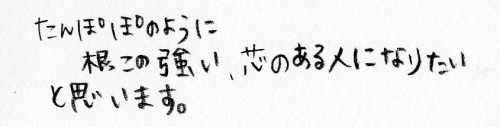 たんぽぽのように
根この強い、芯のある人になりたい
と思います。